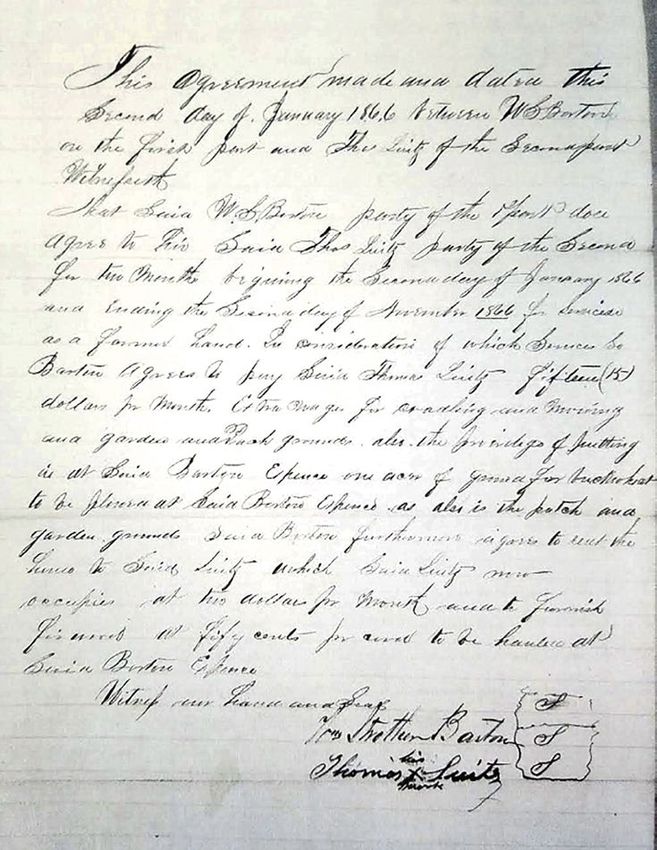 This Agreement made and dated this
Second day of January 1866 between W S Barton
on the first part and Thos Luitz of the Second part
Witnefseth
that Said W. S. Barton party of the 1 part doce
agree to hir Said Thos Luitz party of the Second
for ten Month begining the Second day of January 1866
and Ending the Second day of November 1866 for services
as a farmer hand. In consideration of which Service So
Barton Agrees to pay Said Thomas Luitz fifteen (15)
dollars pr Month. Extra wages for cradling and Mowing
and garden and Patch grounds. also. the priviledge of putting
in at Said Barton Expence one acer of ground for buckwheat
to be plowed at Said Barton Expence as also is the patch and
garden grounds Said Barton furthermore agrees to rent the
house to Said Luitz which Said Luitz now
occupies at two dollars pr Month and to furnish
firewood at fifty cents pr cord to be hauled at
Said Barton Expence
Witnefs our hand and Seal
Wm Strother Barton S
his S
Thomas X Luitz S
mark